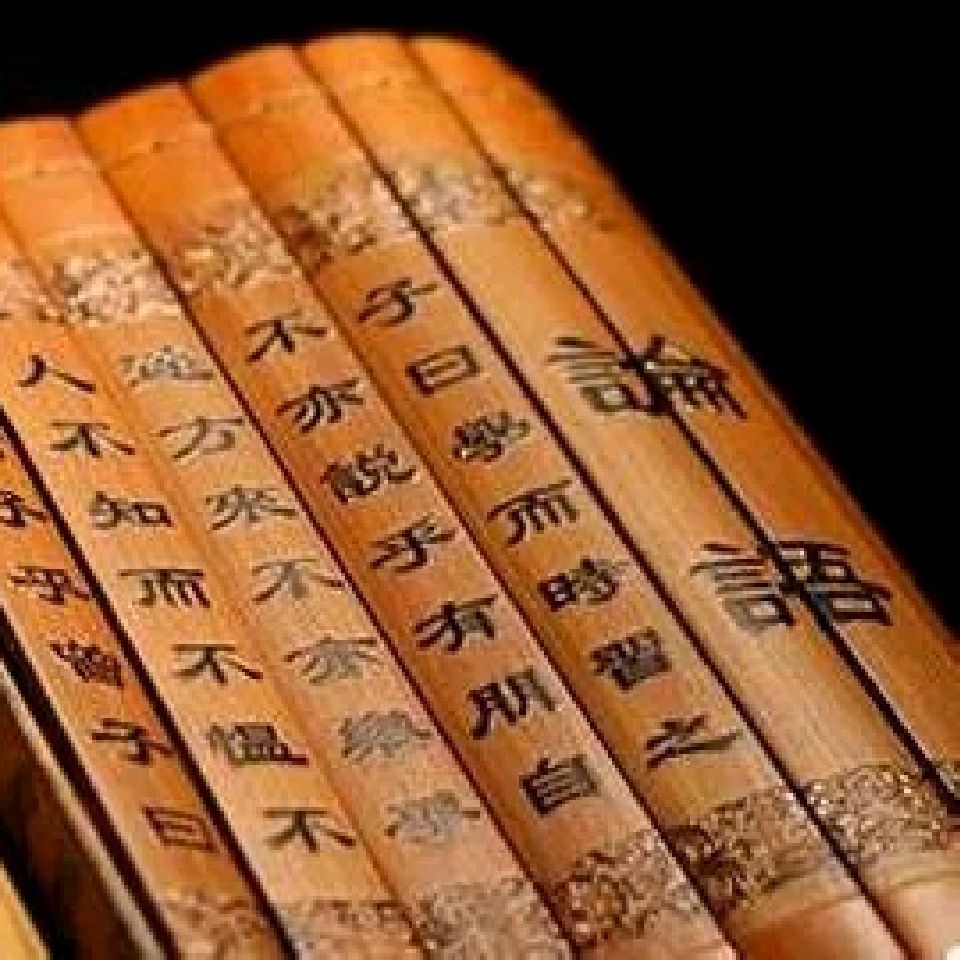 論語
子曰學而時習之
不亦說乎有朋自
遠方來不亦樂乎
人不知而不慍不
子乎曾子曰